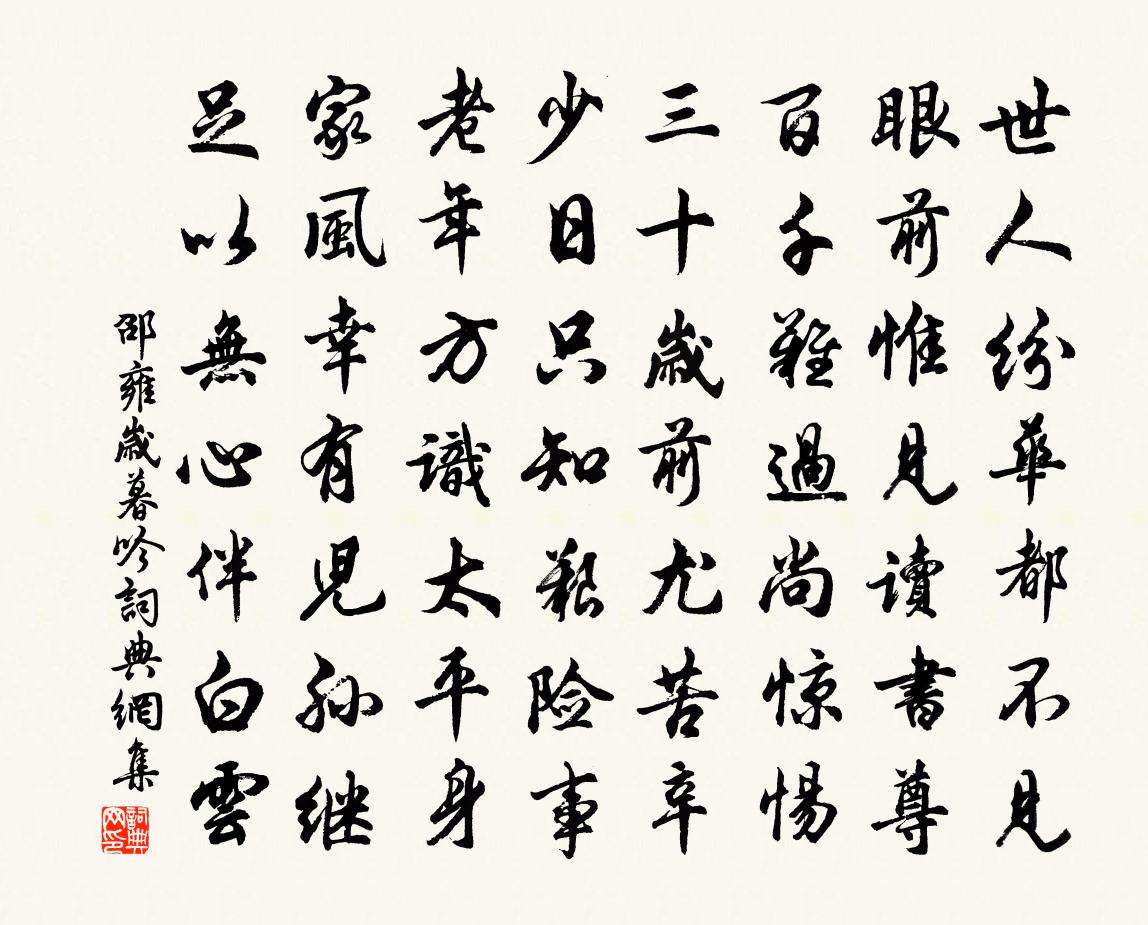 世人紛華都不見
眼前惟見讀書尊
百千難過尚惊惕
三十歲前尤苦辛
少日只知艱险事
老年方識太平身
家風幸有児孙继
足以無心伴白雲
邵雍歲暮吟詞典網集
詞典网印